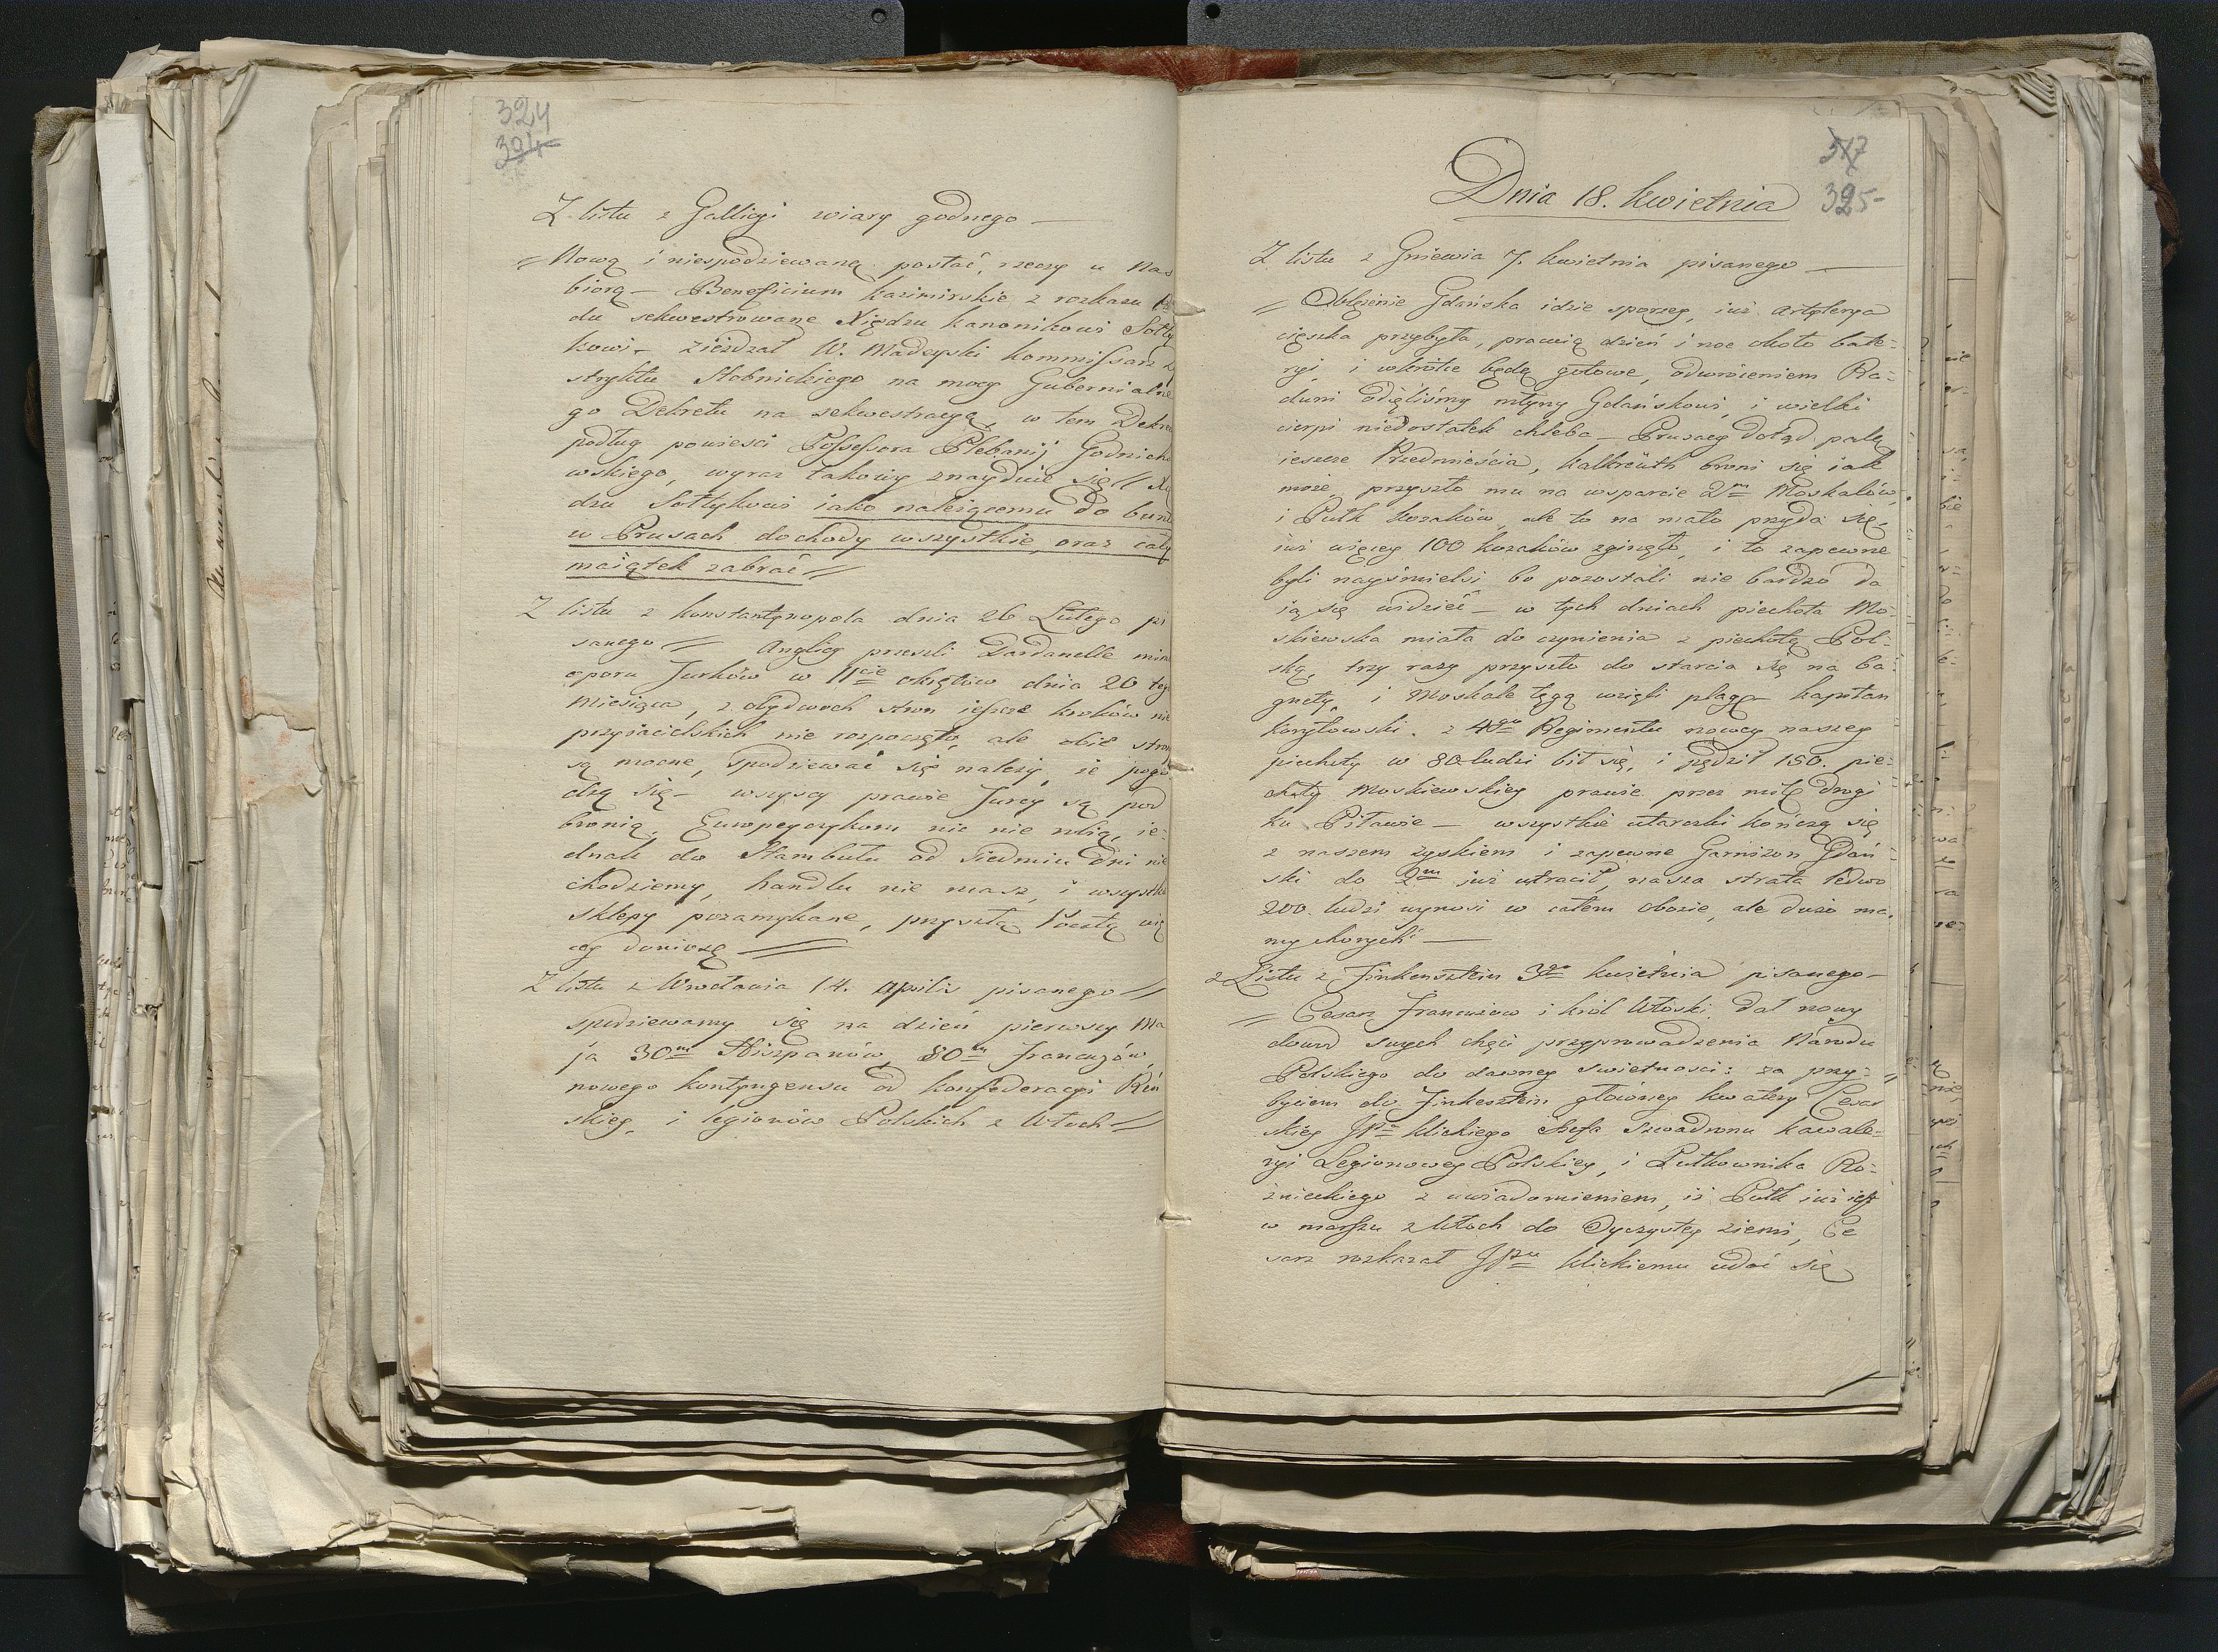 324
394
Z listu z Gallicyi wiary godnego —
Nową i niespodziewaną postać, rzeczy u Nas
biorą — Beneficium kazimirskie z rozkazu
du sekwestrowane Xiędzu kanonikowi Sołty
kowi — ziezdzał W. Madeyski kommissarz
stryktu Stobnickiego na mocy Gubernialne
go Dekretu na sekwestracyą, w tem Dekre
podług powiesci Possessora Plebanij Godnicho
wskiego, wyraz takowy znayduie się //
dzu Sołtykowi iako należącemu do bunt
w Prusach dochody wszystkie, oraz cały
maiątek zabrać //
Z listu z konstantynopola dnia 26 Lutego pi
sanego // Anglicy przeszli Dardanelle mimo
oporu Turków w 11cie okrętów dnia 20 tego
miesiąca, z obydwoch stron ieszcze kroków nie
przyiacielskich nie rozpoczęto, ale obie strony
są mocne, spodziewać się należy, że pogo
dzą się — wszyscy prawie Turcy są pod
bronią, Europeyczykom nic nie robią, ie=
dnak do Stambułu od siedmiu dni nie
chodziemy, handlu nie masz, i wszystkie
sklepy pozamykane, przyszłą Pocztą wię
cey doniosę //
Z listu z Wrocławia 14. Aprilis pisanego //
spodziewamy się na dzień pierwszy Ma
ja 30m Hiszpanów, 80m francuzów,
nowego kontyngensu od konfederacyi Reń
skiey, i legionów Polskich z Włoch //
317
325
Dnia 18. kwietnia
Z listu z Gniewia 7. kwietnia pisanego —
// Oblężenie Gdańska idzie sporzey, iuż artylerya
cięszka przybyła, pracuią dzień i noc około bate=
ryi, i wkrótce będą gotowe, odwróceniem Ra=
duni odięliśmy młyny Gdańskowi, i wielki
cierpi niedostatek chleba — Prusacy dotąd palą
ieszcze Przedmieścia, kalkreuth broni się iak
może, przyszło mu na wsparcie 2m Moskalów,
i Pułk kozaków, ale to na mało przyda się,
iuż więcey 100 kozaków zginęło, i to zapewne
byli nayśmielsi bo pozostali nie bardzo da
ią się widzieć — w tych dniach piechota Mo=
skiewska miała do czynienia z piechotą Pol=
ską, trzy razy przyszło do starcia się na ba=
gnety, i Moskale tęgą wzięli plagę — kapitan
koryłowski z 4go Regimentu nowey naszey
piechoty w 80 ludzi bił się, i pędził 150. pie=
choty Moskiewskiey prawie przez milę drogi
ku Piławie — wszystkie utarczki kończą się
z naszem zyskiem i zapewne Garnizon Gdań
ski do 2m iuż utracił, nasza strata ledwo
200. ludzi wynosi w całem obozie, ale dużo ma
my chorych —
z Listu z Finkensztein 3go kwietnia pisanego —
// Cesarz francuzow i król Włoski dał nowy
dowod swych chęci przyprowadzenia Narodu
Polskiego do dawney swietnosci: za przy=
byciem do Finkesztein główney kwatery Cesar
skiey JPa klickiego Szefa Szwadronu kawale=
ryi Legionowey Polskiey, i Pułkownika Ro=
żnieckiego z uwiadomieniem, iż Pułk iuż iest
w marszu z Włoch do Oyczystey ziemi, Ce
sarz rozkazał JPu klickiemu udać się